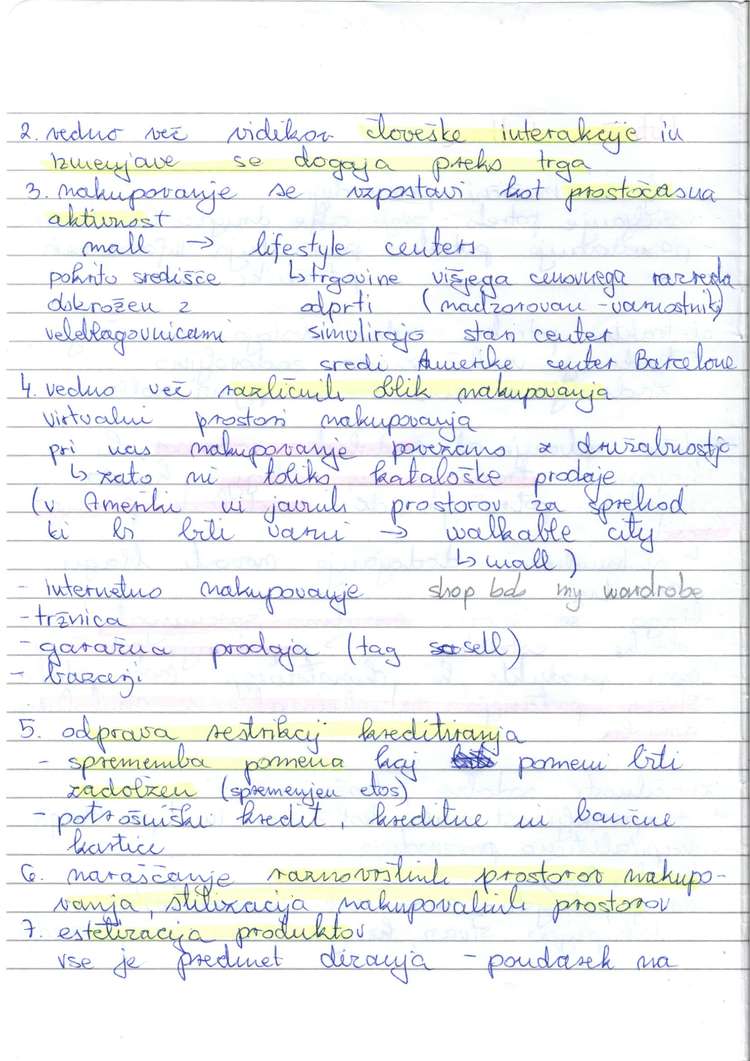 2. vedno več vidikov človeške interakcije in
izmenjave se dogaja preko trga
3. nakupovanje se vzpostavi kot prostočasna
aktivnost
mall → lifestyle centers
pokrito središče ↳ trgovine višjega cenovnega razreda
obkrožen z odprti (nadzorovan - varnostniki)
veleblagovnicami simulirajo stari center
sredi Amerike center Barcelone
4. vedno več različnih oblik nakupovanja
virtualni prostori nakupovanja
pri nas nakupovanje povezano z družabnostjo
↳ zato ni toliko kataloške prodaje
(v Ameriki ni javnih prostorov za sprehod
ki bi bili varni → walkable city
↳ mall)
- internetno nakupovanje shop my wardrobe
- tržnica
- garažna prodaja (tag sell)
- bazarji
5. odprava restrikcij kreditiranja
- sprememba pomena kaj pomeni biti
zadolžen (spremenjen etos)
- potrošniški kredit, kreditne in bančne
kartice
6. naraščanje raznovrstnih prostorov nakupo-
vanja, stilizacija nakupovalnih prostorov
7. estetizacija produktov
vse je predmet dizajna - poudarek na